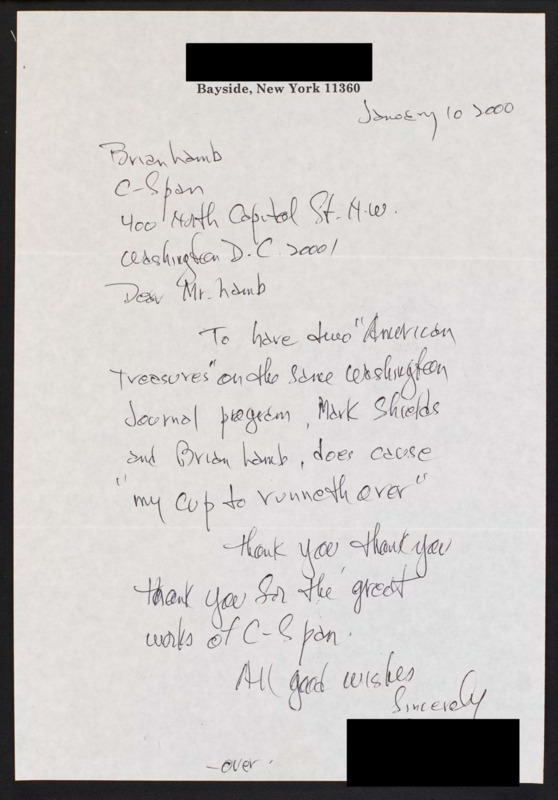 Bayside, New York 11360
January 10 2000
Brian Lamb
C-Span
400 North Capitol St. N.W.
Washington D.C. 20001
Dear Mr. Lamb
To have two "American
Treasures" on the same Washington
Journal program, Mark Shields
and Brian Lamb, does cause
"my cup to runneth over"
Thank you thank you
thank you for the great
works of C-Span.
All good wishes
Sincerely
-over-